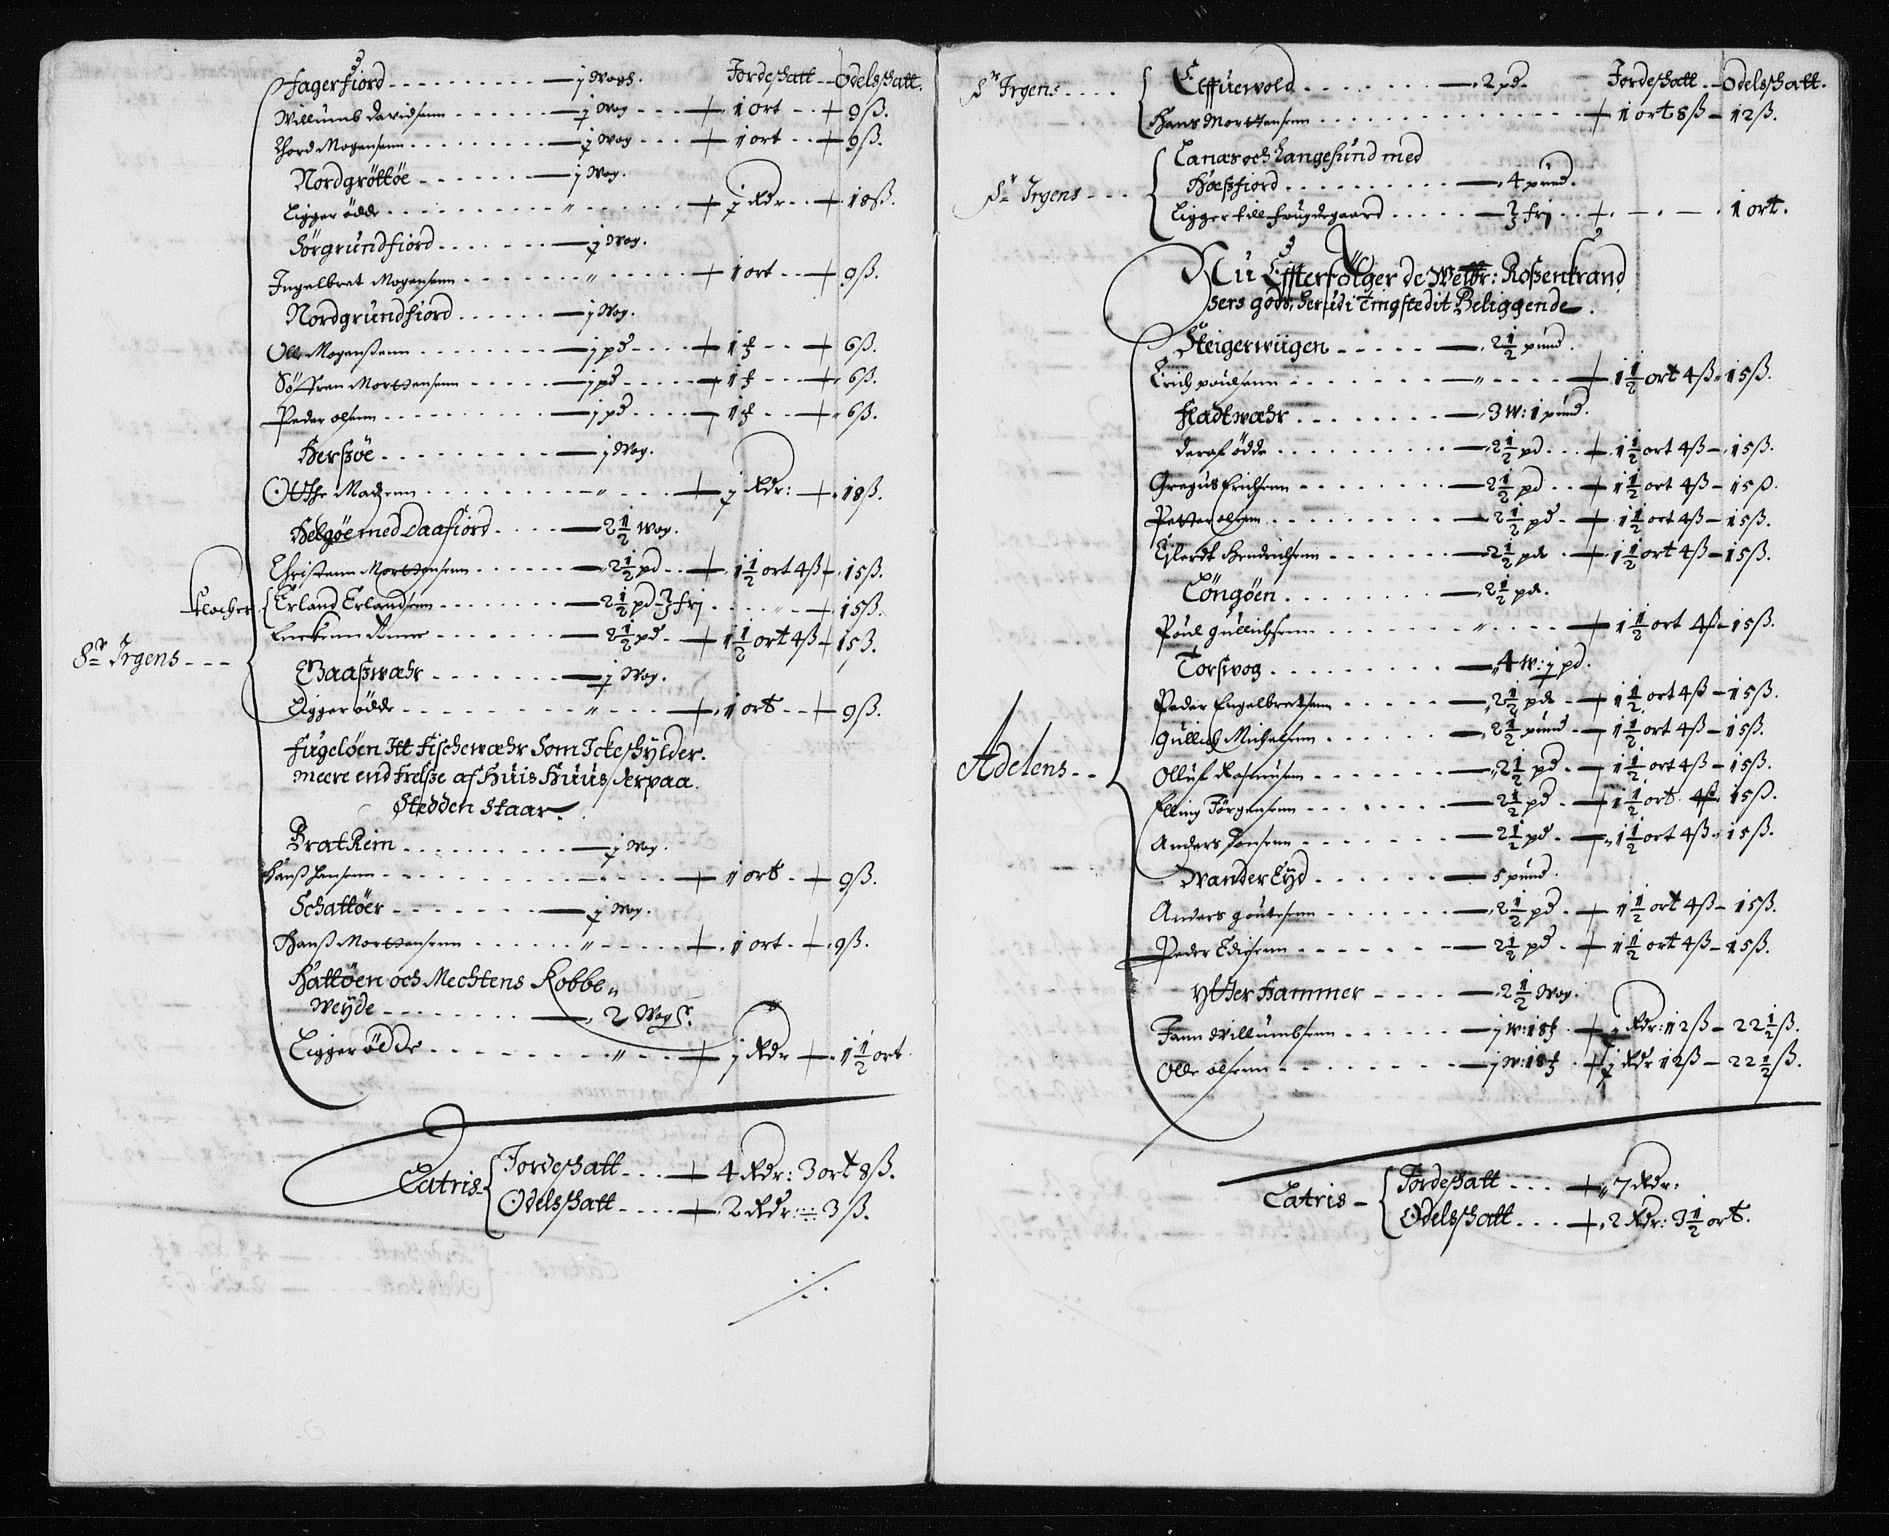 Fagerfiord - - - j wogh. Jordeschatt - Odelsschatt.
Willumb Davidsenn - - - ½ wog - + 1 ort - + 9ß.
Thord Mogensenn - - - ½ wog - + 1 ort - + 9ß.
Nordgröttöe - - - j wog.
Ligger ödde - - - „ - + ½ Rdr - + 18ß.
Sörgrundfiord - - - ½ wog.
Ingelbret Mogensenn - - - „ - + 1 ort - + 9ß.
Nordgrundfiord - - - j wog.
Olle Mogenßenn - - - j pd - + 1 ℔ - + 6ß.
Söffren Morttensenn - - - j pd - + 1 ℔ - + 6ß.
Peder olsenn - - - j pd - + 1 ℔ - + 6ß.
Herßöe - - - j wog.
Otthe Madzenn - - - „ - + ½ Rdr: - + 18ß.
Helgöe med Daafiord - - - 2½ wog.
Christenn Morttensenn - - - 2½ pd - + 1½ ort 4ß - 15ß.
Klocher { Erland Erlandsenn - - - 2½ pd fri - „ - + 15ß.
Enckenn - - - 2½ pd - + 1½ ort 4ß - 15ß.
Sr Irgens - - -
Gaaßwæhr - - - ½ wog.
Ligger ödde - - - „ - + 1 ort - + 9ß.
Fugelöen Itt Fischewæhr Som Icke skylder.
meere end Frelße af Huis Huus derpaa
Stedden Staar.
Bratreim - - - ½ wog.
Hanß hansenn - - - „ - + 1 ort - + 9ß.
Schattöer - - - ½ wog.
Hanß Morttensenn - - - „ - + 1 ort - + 9ß.
Hattöen och Mechtens Kobbe„
Weyde - - - 2 wogr.
Ligger ödde - - - „ - + j Rdr - + 1½ ort.
Latris { Jordeschatt - - - + 4 Rdr: 3 ort 8ß.
Odelsschatt - - - + 2 Rdr: 3ß.
Sr Irgens - - - { Effuervold - - - 2 pd. Jordeschatt - Odelsschatt.
Hans Morttensenn - - - + 1 ort 8ß - 12ß.
Lanæs och Langesund med
Sr Irgens - - - { Höeßfiord - - - 4 pund.
Ligger till fougdegaard - - - fri - + - - 1 ort.
Nu Effterfölger de Welbr: Roßenkrand
sers gods, her udi Tingstedit Beliggende.
Steigerwiigen - - - 2½ pund.
Erich poulsenn - - - „ - + 1½ ort 4ß - 15ß.
Fladtwæhr - - - 3 w: 1 pund.
deraf ödde - - - 2½ pd - + 1½ ort 4ß - 15ß.
Gregus Erichsenn - - - 2½ pd - + 1½ ort 4ß - 15ß
Petter olsenn - - - 2½ pd - + 1½ ort 4ß - 15ß.
Eylerdt Hendrichsenn - - - 2½ pd - + 1½ ort 4ß - 15ß.
Löngöen - - - 2½ pd.
Poul gullichsenn - - - „ - + 1½ ort 4ß - 15ß.
Torsvog - - - 4 w: ½ pd.
Peder Engelbrettsenn - - - 2½ pd - + 1½ ort 4ß - 15ß.
Gullich Michelsenn - - - 2½ pund - + 1½ ort 4ß - 15ß.
Adelens - -
Olluf Rasmusenn - - - 2½ pd - + 1½ ort 4ß - 15ß.
Elling Jörgensenn - - - 2½ pd - + 1½ ort 4ß 15ß.
Anders Jonsenn - - - 2½ pd - + 1½ ort 4ß - 15ß.
Wander Eyd - - - 5 pund.
Anders goutesenn - - - 2½ pd - + 1½ ort 4ß - 15ß.
Peder Edisenn - - - 2½ pd - + 1½ ort 4ß - 15ß.
Ytter Hammer - - - 2½ wog.
Jann Willumbsenn - - - j w: 18 ℔ - + ½ Rdr: 12ß - 22½ß.
Olle olsenn - - - j w: 18 ℔ - + ½ Rdr 12ß - 22½ß.
Latris - { Jordeschatt - - - + 7 Rdr:
Odelsschatt - - - + 2 Rdr: 3½ ort.